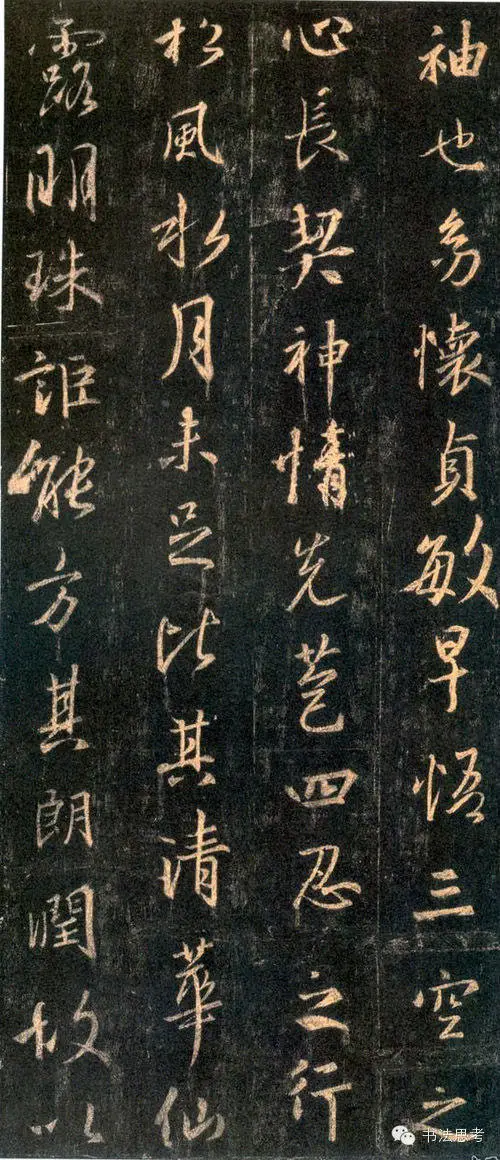 袖也幼懷貞敏早悟三空之
心長契神情先苞四忍之行
松風水月未足比其清華仙
露明珠詎能方其朗潤故以
书法思考